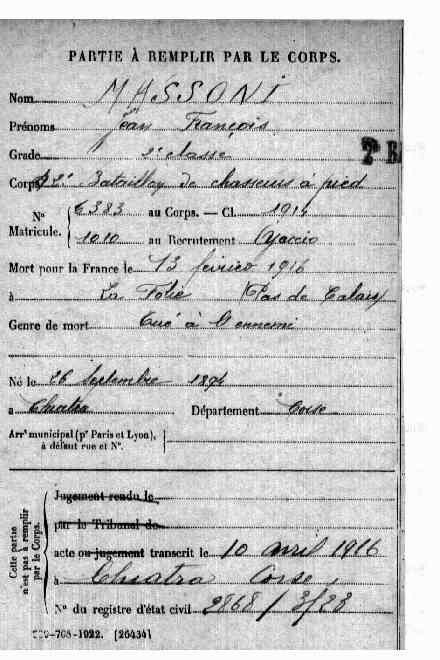 PARTIE À REMPLIR PAR LE CORPS.
Nom MASSONI
Prénoms Jean François
Grade 2e classe
Corps 2e Bataillon de chasseurs à pied
No Matricule. 6383 au Corps. — Cl. 1914
1010 au Recrutement Ajaccio
Mort pour la France le 13 février 1916
à La Folie (Pas de Calais)
Genre de mort Tué à l'ennemi
Né le 26 Septembre 1894
à Chiatra Département Corse
Arrt municipal (pr Paris et Lyon), à défaut rue et No.
Cette partie n'est pas à remplir par le Corps.
Jugement rendu le
par le Tribunal de
acte ou jugement transcrit le 10 avril 1916
à Chiatra Corse
No du registre d'état civil 2868/3/28
-708-1922. [26434]